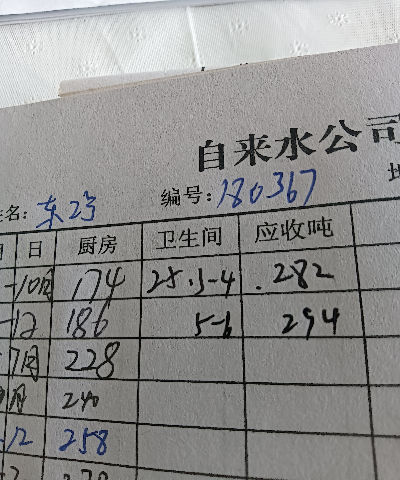 自来水公司
姓名: 东23 编号: 180367
日 厨房 卫生间 应收吨
-10月 174 25.3-4 282
-12 186 5-6 294
-7月 228
月 240
-12 258